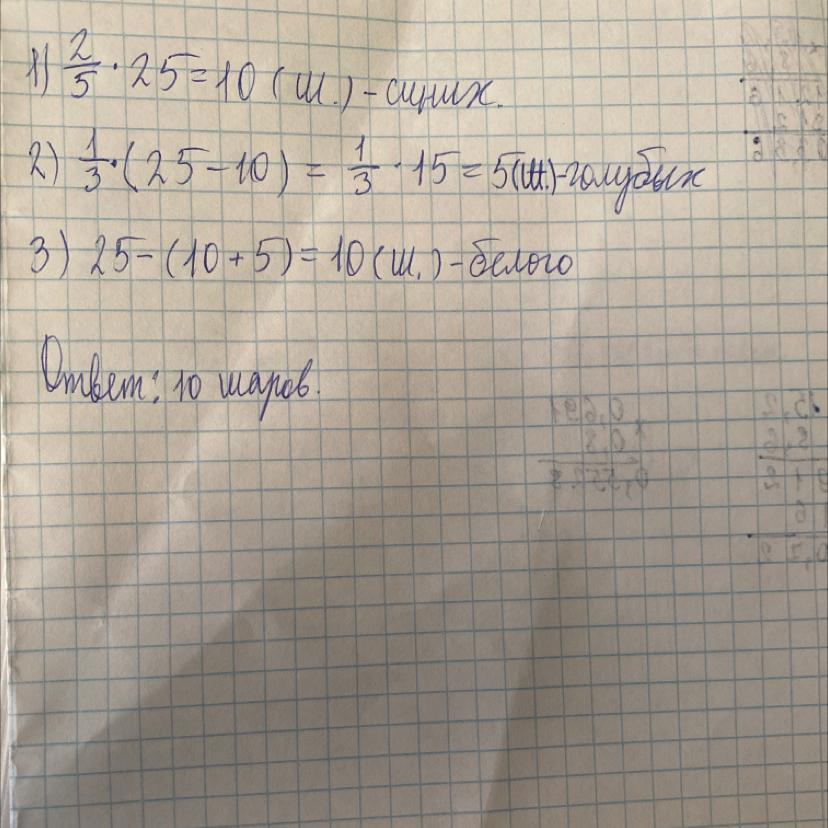 1) 2/5 · 25 = 10 (ш.) - синих.
2) 1/3 · (25 - 10) = 1/3 · 15 = 5 (ш.) - голубых
3) 25 - (10 + 5) = 10 (ш.) - белого
Ответ: 10 шаров.